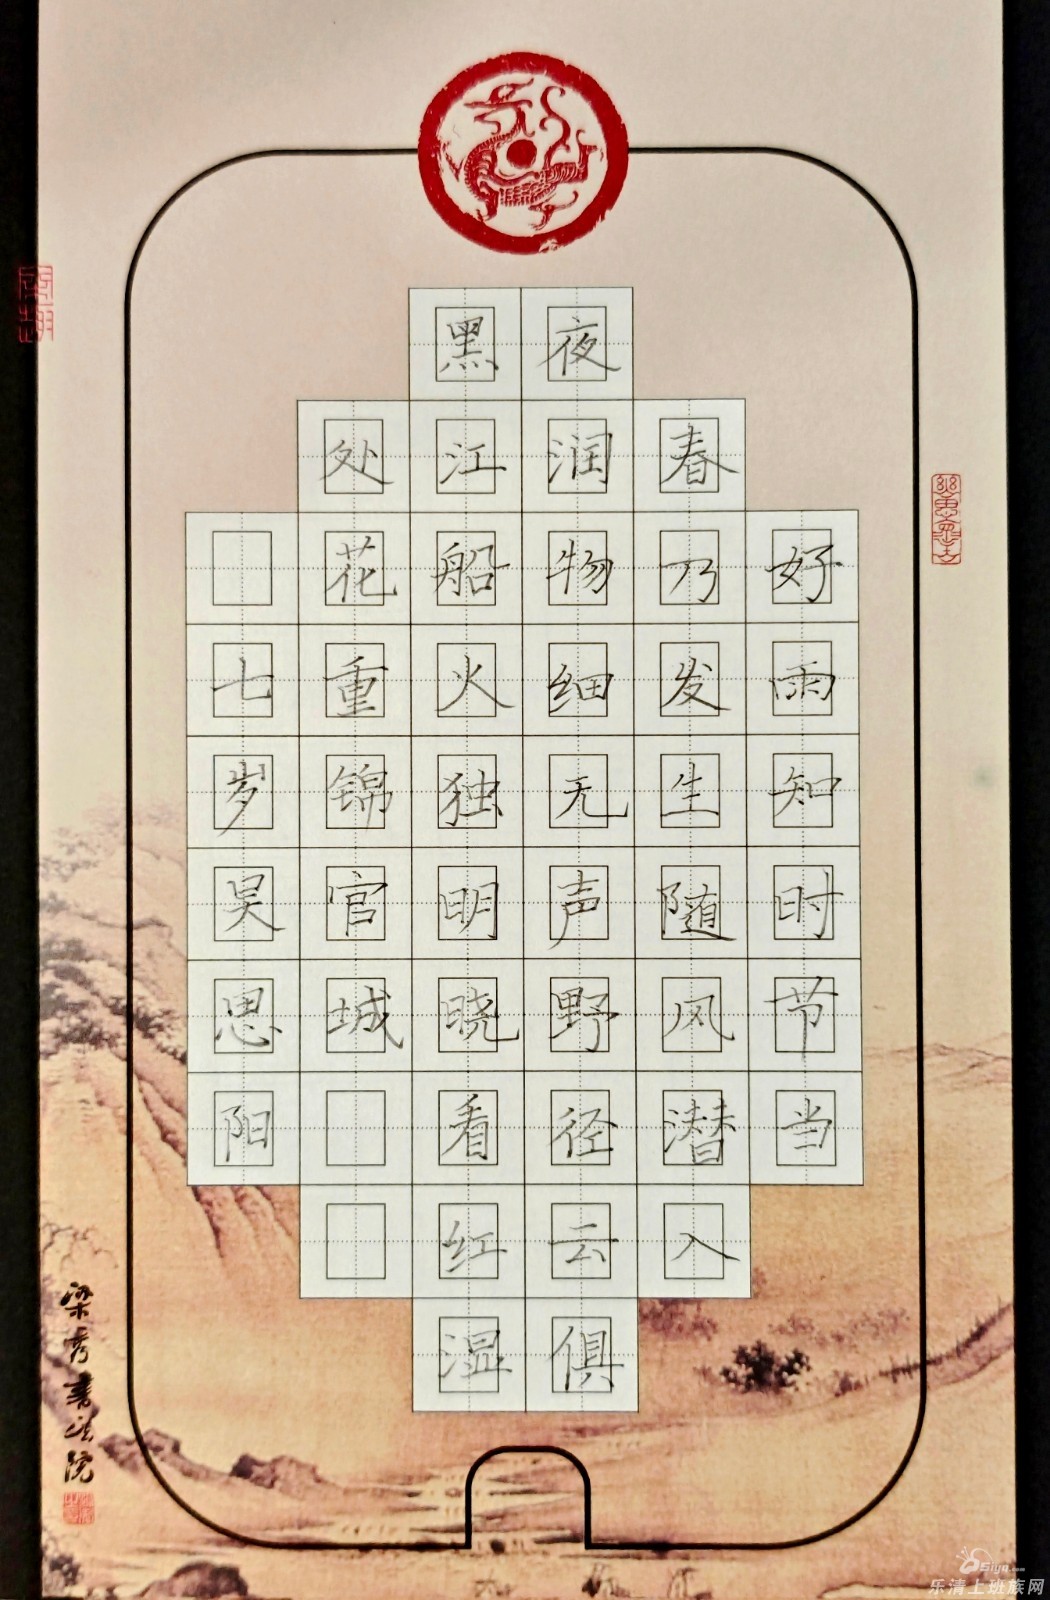 好雨知时节当
春乃发生随风潜入
夜润物细无声野径云俱
黑江船火独明晓看红湿
处花重锦官城
七岁吴思阳
梁秀書法院
乐清上班族网